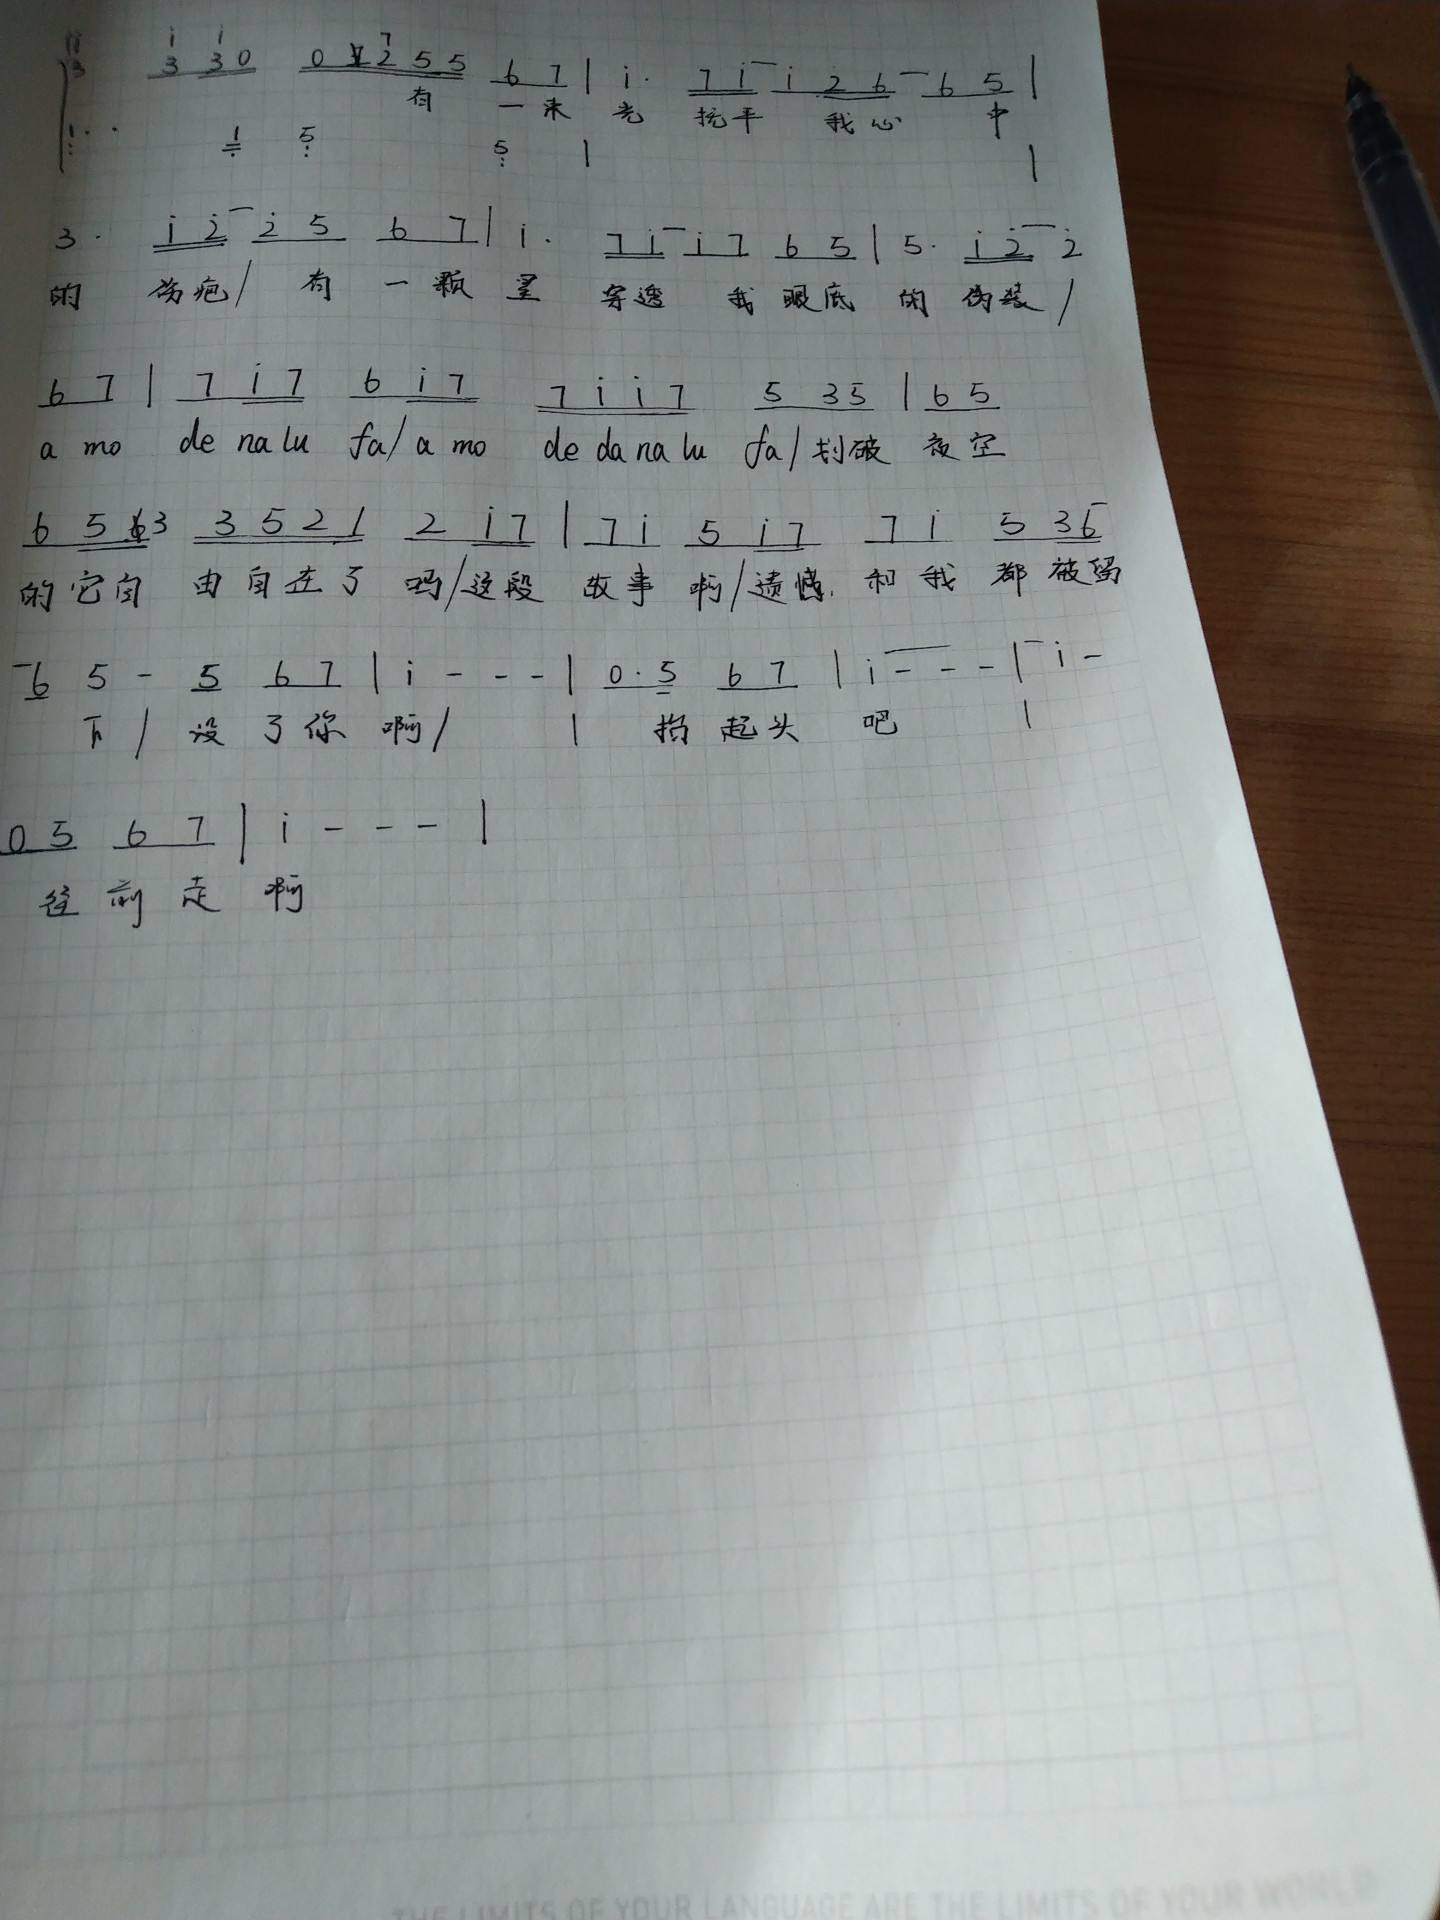 i i 7
3 3 0 0 2 5 5 6 7 | i· 7 i i 2 6 6 5 |
有 一束 光 抚平 我心 中
1 5 5 | |
3· i 2 2 5 6 7 | i· 7 i i 7 6 5 | 5· i 2 2
的 伤疤/ 有 一颗 星 穿透 我 眼底 的 伪装/
6 7 | 7 i 7 6 i 7 7 i i 7 5 3 5 | 6 5
a mo de na lu fa/ a mo de da na lu fa/ 划破 夜空
6 5 3 3 5 2 1 2 i 7 | 7 i 5 i 7 7 i 5 3 6
的它自 由自在了 吗/这段 故事 啊/遗憾 和我 都被留
6 5 - 5 6 7 | i - - - | 0·5 6 7 | i - - - | i -
下/ 没 了你 啊/ | 抬 起头 吧 |
0 5 6 7 | i - - - |
往 前 走 啊
THE LIMITS OF YOUR LANGUAGE ARE THE LIMITS OF YOUR WORLD